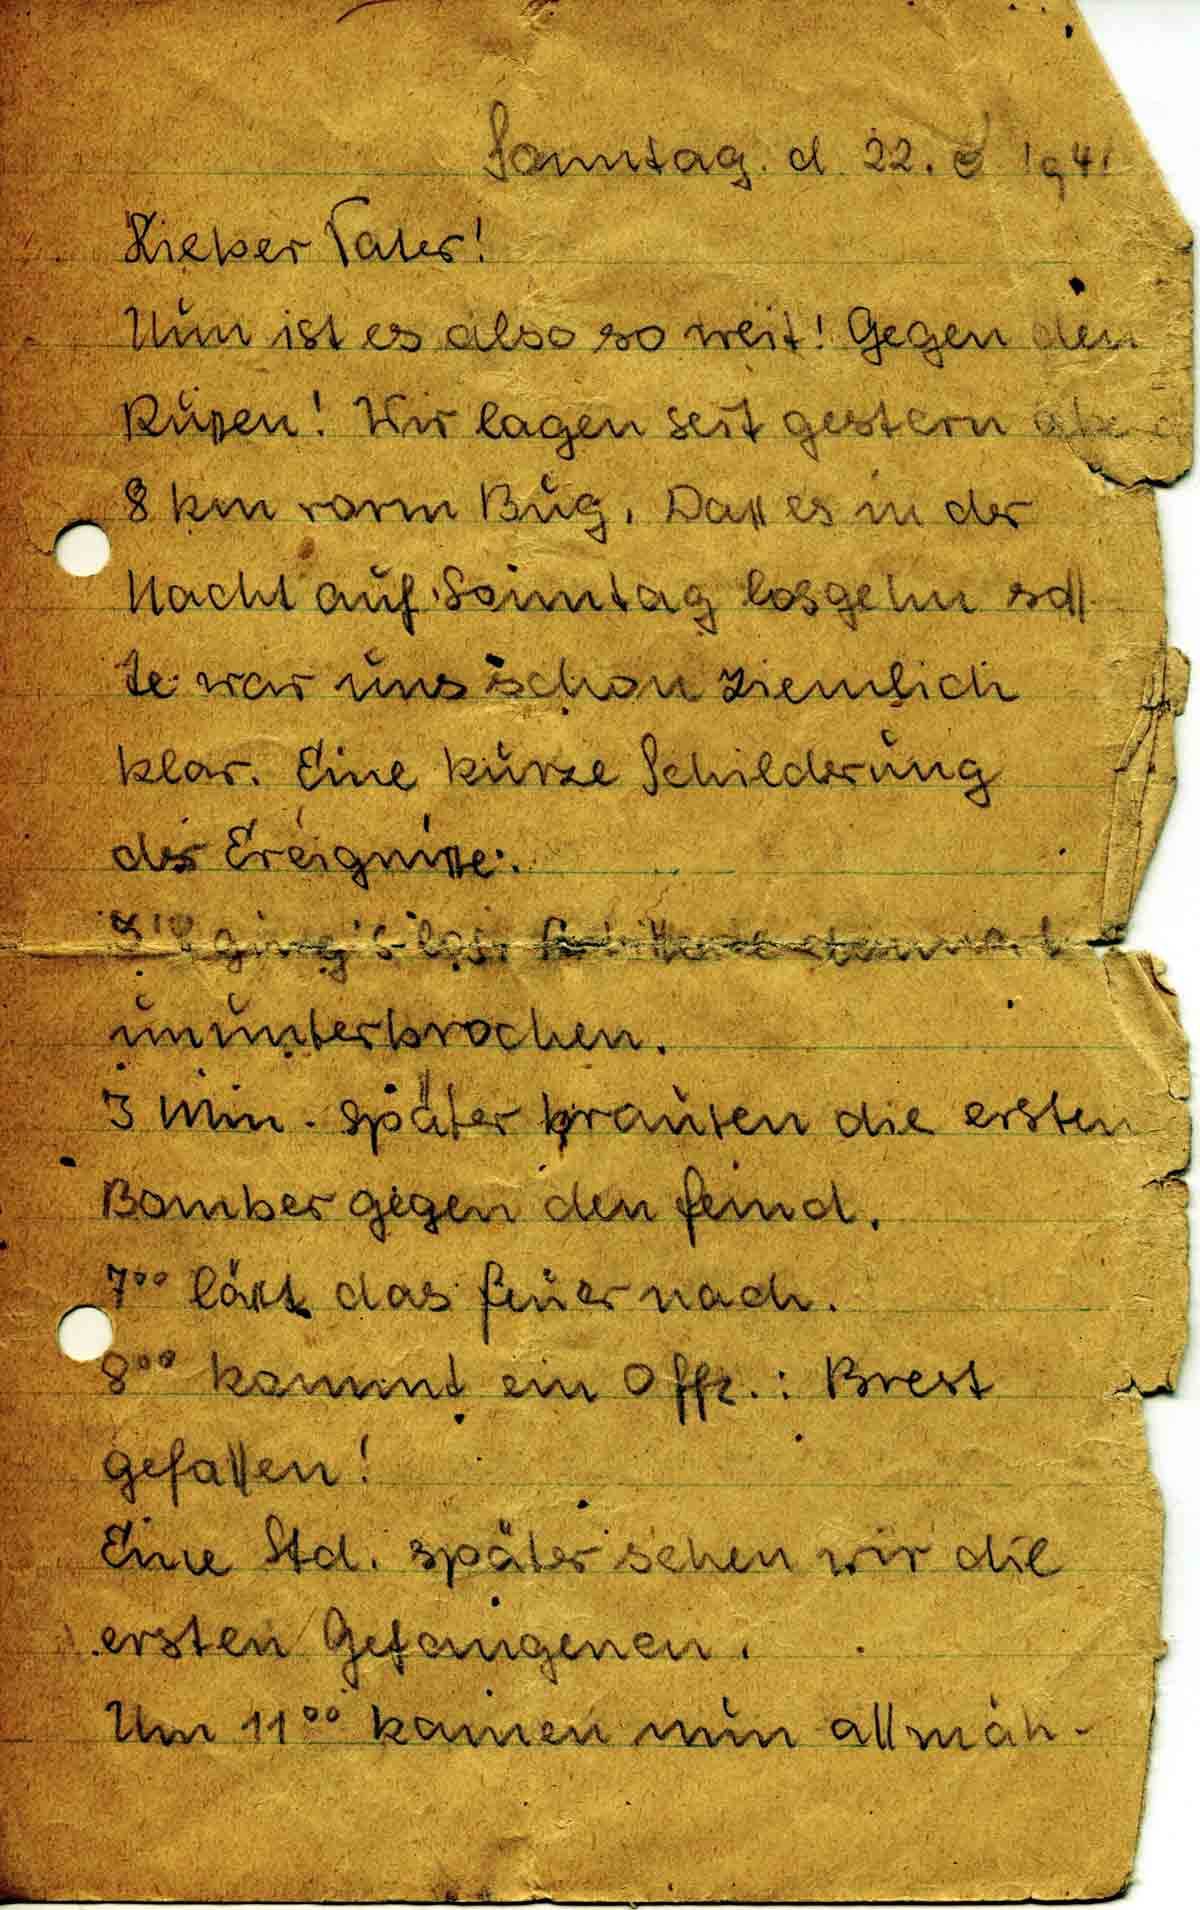 Sonntag. d 22. 6 1941
Lieber Vater!
Nun ist es also so weit! Gegen den
Rußen! Wir lagen seit gestern abend
8 km vorm Bug. Daß es in der
Nacht auf Sonntag losgehn soll-
te war uns schon ziemlich
klar. Eine kurze Schilderung
der Ereigniße:
ging's los.
ununterbrochen.
3 Min. später brausten die ersten
Bomber gegen den Feind.
7⁰⁰ läßt das Feuer nach.
8⁰⁰ kommt ein Offz.: Brest
gefallen!
Eine Std. später sehen wir die
ersten Gefangenen.
Um 11⁰⁰ kamen nun allmäh-